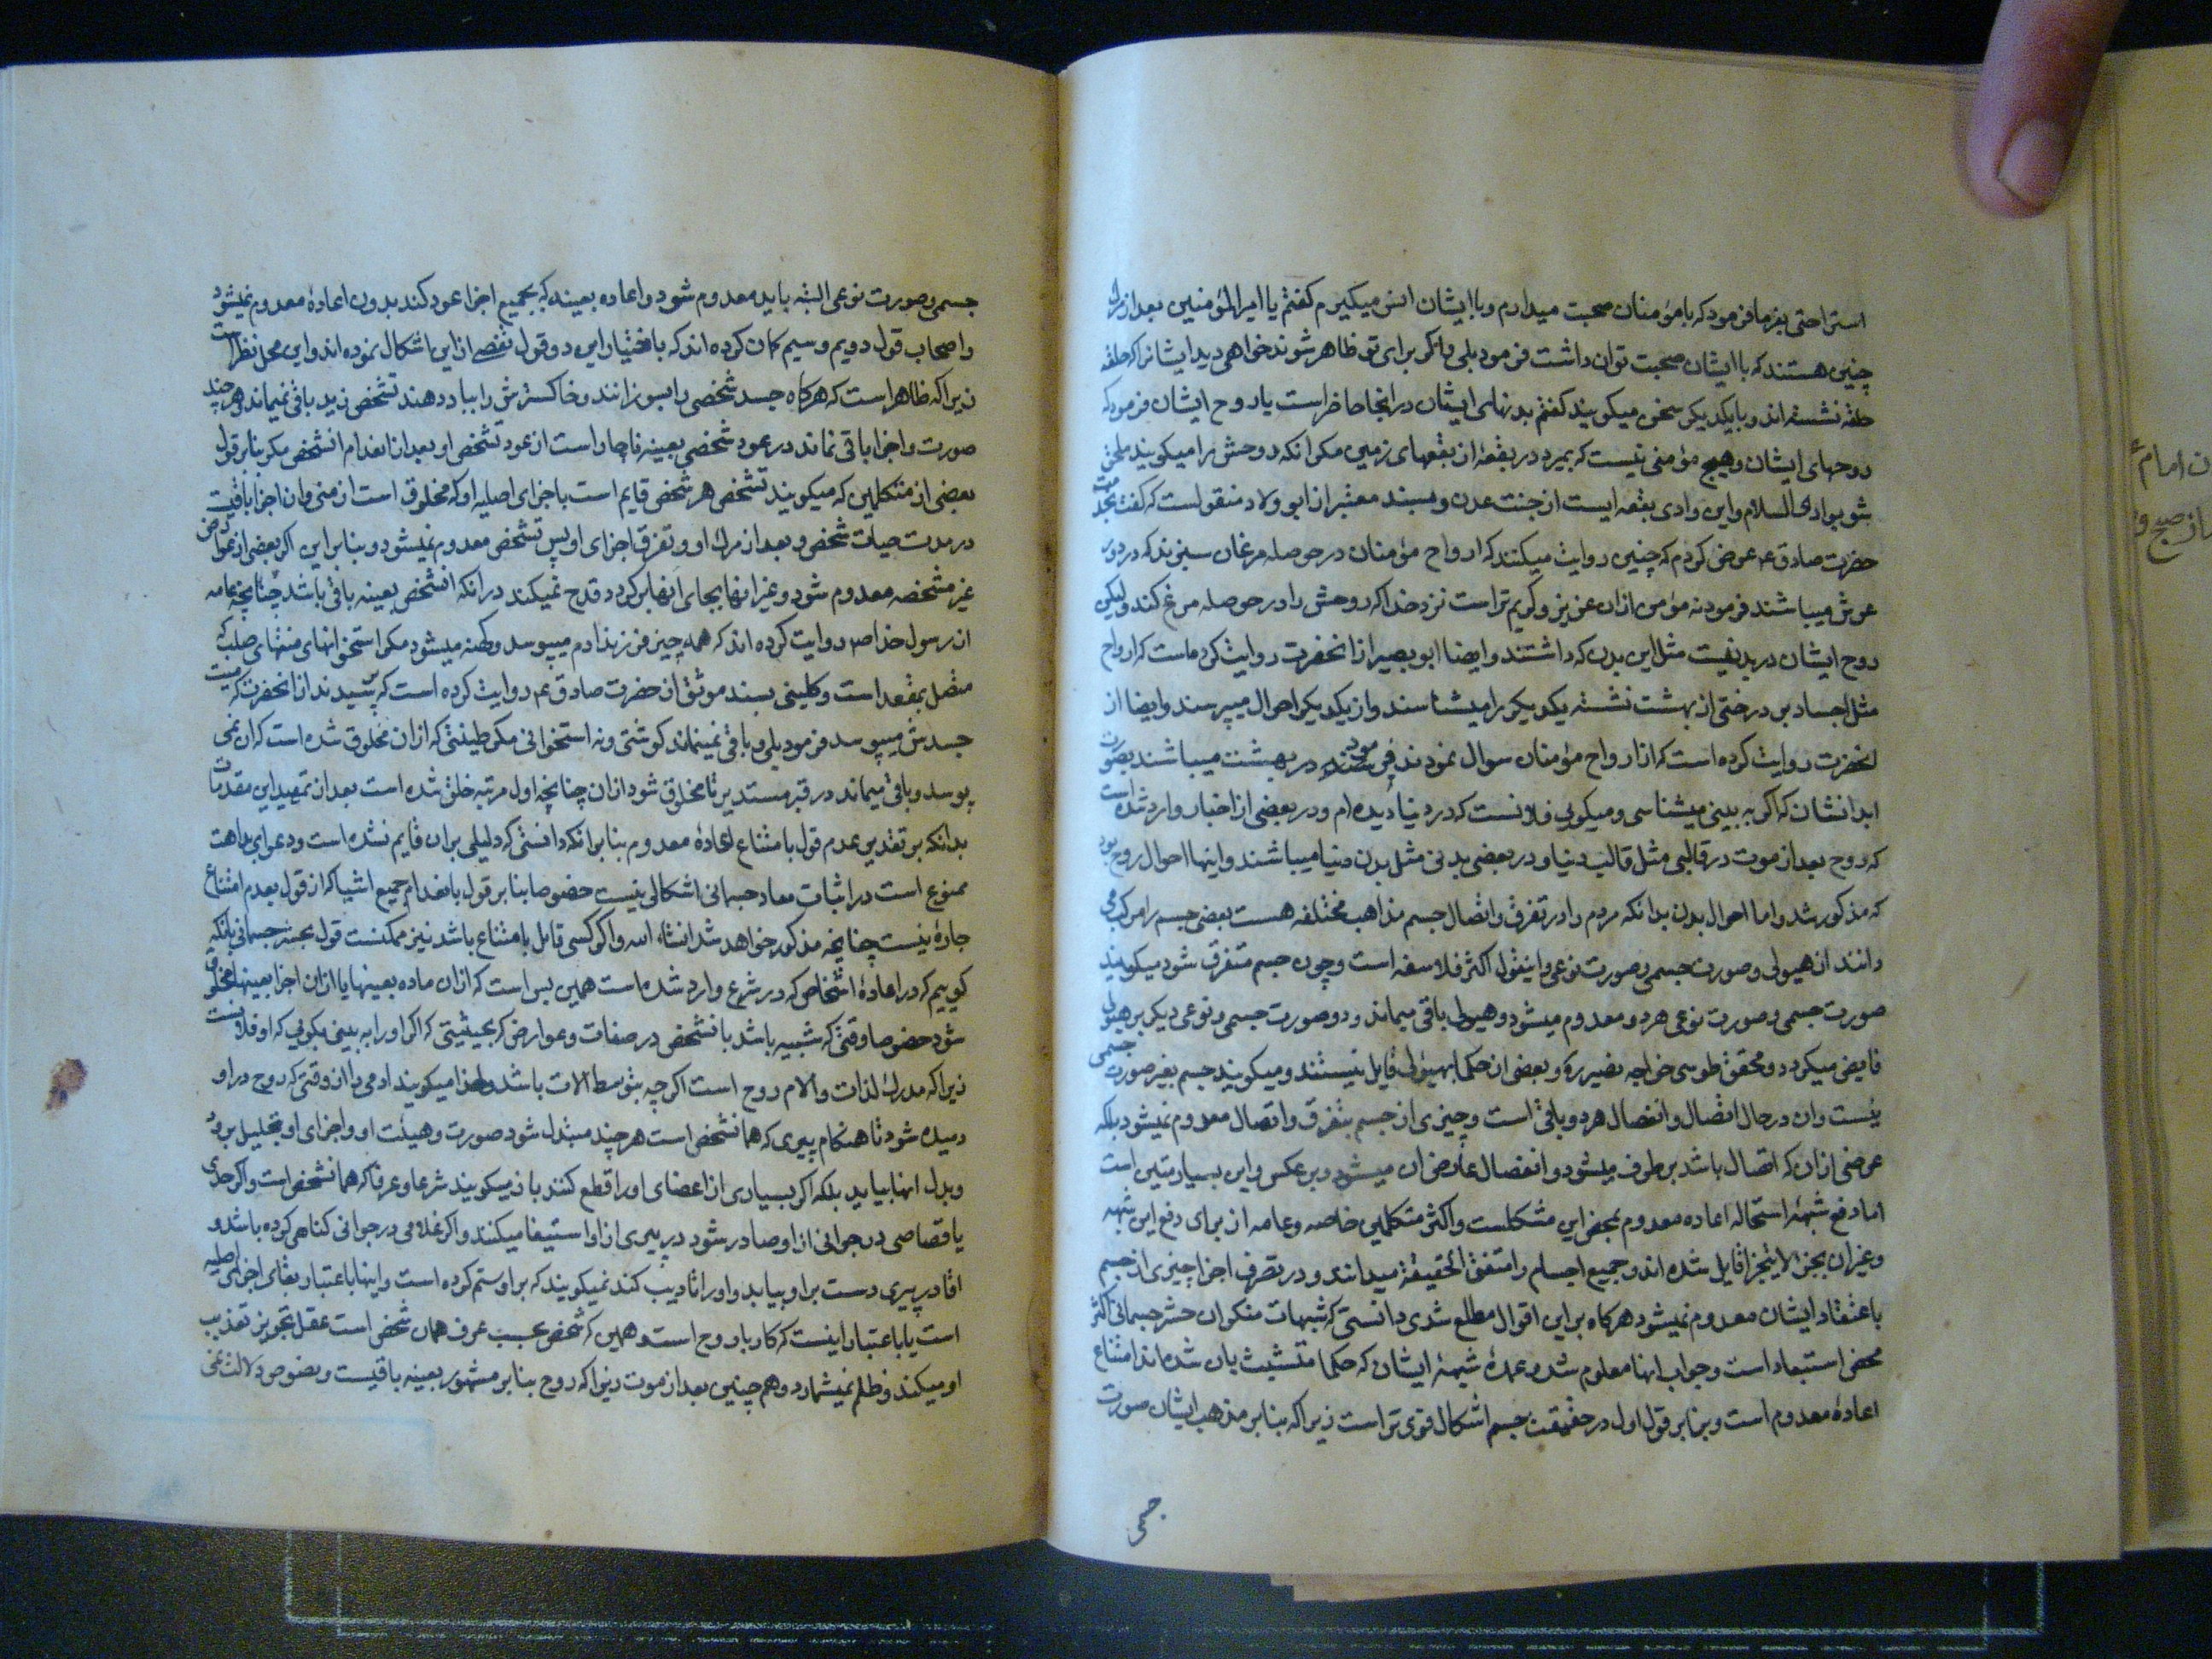 استراحتی بفرما فرمود که با مؤمنان صحبت میدارم و با ایشان انس میکیرم کفتم یا امیرالمؤمنین بعد از مرك
چنین هستند که با ایشان صحبت توان داشت فرمود بلی و اکر برای تو ظاهر شوند خواهی دید ایشانرا که حلقه
حلقه نشسته اند و با یکدیکر سخن میکویند کفتم بدنهای ایشان در اینجا حاضر است یا روح ایشان فرمود که
روحهای ایشان و هیچ مؤمنی نیست که بمیرد در بقعهٔ از بقعهای زمین مکر انکه روحش را میکویند ملحق
شو بوادی السلام و این وادی بقعه ایست از جنت عدن و بسند معتبر از ابو ولاد منقولست که کفت بخدمت
حضرت صادق عم عرض کردم که چنین روایت میکنند که ارواح مؤمنان در حوصله مرغان سبزند که در دور
عرش میباشند فرمود نه مؤمن ازان عزیز و کریم تر است نزد خدا که روحش را در حوصله مرغ کند و لیکن
روح ایشان در بدنیست مثل این بدن که داشتند و ایضا ابو بصیر از انحضرت روایت کرده است که ارواح
مثل اجساد بر درختی از بهشت نشسته یکدیکر را میشناسند و از یکدیکر احوال میپرسند و ایضا از
انحضرت روایت کرده است که از ارواح مؤمنان سوال نمودند فرمود در بهشت میباشند بصورت
ابدانشان که اکر به بینی میشناسی و میکویی فلانست که در دنیا دیده ام و در بعضی از اخبار وارد شده است
که روح بعد از موت در قالبی مثل قالب دنیا و در بعضی بدنی مثل بدن دنیا میباشند و اینها احوال روح بود
که مذکور شد و اما احوال بدن بدانکه مردم را در تفرق و اتصال جسم مذاهب مختلفه هست بعضی جسم را مرکب می
دانند از هیولی و صورت جسمی و صورت نوعی و اینقول اکثر فلاسفه است و چون جسم متفرق شود میکویند
صورت جسمی و صورت نوعی هر دو معدوم میشود و هیولی باقی میماند و دو صورت جسمی و نوعی دیکر بر هیولی
فایض میکردد و محقق طوسی خواجه نصیر ره و بعضی از حکما بهیولی قایل نیستند و میکویند جسم بغیر صورت جسمی
نیست و ان در حال اتصال و انفصال هر دو باقی است و چیزی از جسم بتفرق و اتصال معدوم نمیشود بلکه
عرضی ازان که اتصال باشد بر طرف میشود و انفصال عارض ان میشود و بر عکس و این بسیار متین است
اما دفع شبههٔ استحاله اعاده معدوم بمحض این مشکلست و اکثر متکلمین خاصه و عامه از برای دفع این شبهه
و غیر ان بجزء لا یتجزا قایل شده اند و جمیع اجسام را متفق الحقیقة میدانند و در تفرق اجزا چیزی از جسم
باعتقاد ایشان معدوم نمیشود هرکاه بر این اقوال مطلع شدی دانستی که شبهات منکران حشر جسمانی اکثر
محض استبعاد است و جواب انها معلوم شد و عمدهٔ شبهه ایشان که حکما متشبث بان شده اند امتناع
اعادهٔ معدوم است و بنا بر قول اول در حقیقت جسم اشکال قوی تر است زیرا که بنا بر مذهب ایشان صورت
جسمی
جسمی و صورت نوعی البته باید معدوم شود و اعاده بعینه که بجمیع اجزا عود کند بدون اعادهٔ معدوم نمیشود
و اصحاب قول دویم و سیم کمان کرده اند که باختیار این دو قول تفصی از این اشکال نموده اند و این محل نظر است
زیرا که ظاهر است که هرکاه جسد شخصی را بسوزانند و خاکسترش را بباد دهند تشخص زید باقی نمیماند و هر چند
صورت و اجزا باقی نماند در عود شخصی بعینه ناچار است از عود تشخص او بعد از انعدام انشخص مکر بنا بر قول
بعضی از متکلمین که میکویند تشخص هر شخص قایم است باجزای اصلیه او که مخلوق است از منی و ان اجزا باقیست
در مدت حیات شخص و بعد از مرك او و تفرق اجزای او پس تشخص معدوم نمیشود و بنا بر این اکر بعضی از عوارض
غیر مشخصه معدوم شود و غیر انها بجای انها برکردد قدح نمیکند در انکه انشخص بعینه باقی باشد چنانچه عامه
از رسول خدا ص روایت کرده اند که همه چیز فرزند ادم میپوسد و کهنه میشود مکر استخوانهای منتهای صلب که
متصل بمقعد است و کلینی بسند موثق از حضرت صادق عم روایت کرده است که پرسیدند از انحضرت که میت
جسدش میپوسد فرمود بلی و باقی نمیماند کوشتی و نه استخوانی مکر طینتی که ازان مخلوق شده است که ان نمی
پوسد و باقی میماند در قبر مستدیر تا مخلوق شود ازان چنانچه اول مرتبه خلق شده است بعد از تمهید این مقدمات
بدانکه بر تقدیر عدم قول بامتناع اعادهٔ معدوم بنا بر انکه دانستی که دلیلی بر ان قایم نشده است و دعوای بداهت
ممنوع است در اثبات معاد جسمانی اشکالی نیست خصوصا بنا بر قول بانعدام جمیع اشیا که از قول بعدم امتناع
چاره نیست چنانچه مذکور خواهد شد انشاء الله و اکر کسی قایل بامتناع باشد نیز ممکنست قول بحشر جسمانی بانکه
کوییم که در اعادهٔ اشخاص که در شرع وارد شده است همین بس است که ازان ماده بعینها یا ازان اجزا بعینها مخلوق
شود خصوصا وقتی که شبیه باشد بانشخص در صفات و عوارض که بحیثیتی که اکر او را به بینی بکویی که او فلانست
زیرا که مدرك لذات و آلام روح است اکرچه بتوسط الات باشد و لهذا میکویند ادمی را از وقتی که روح در او
دمیده شود تا هنکام پیری که همانشخص است هر چند مبتدل شود صورت و هیئت او و اجزای او بتحلیل برود
و بدل انها بیاید بلکه اکر بسیاری از اعضای او را قطع کنند باز میکویند شرعا و عرفا که همانشخص است و اکر حدی
یا قصاصی در جوانی از او صادر شود در پیری از او استیفا میکنند و اکر غلامی در جوانی کناهی کرده باشد و
اقا در پیری دست بر او بیابد و او را تادیب کند نمیکویند که بر او ستم کرده است و اینها باعتبار بقای اجزای اصلیه
است یا باعتبار اینست که کار با روح است و همین که شخص بحسب عرف همان شخص است عقل تجویز تعذیب
او میکند و ظلم نمیشمارد و هم چنین بعد از موت زیرا که روح بنا بر مشهور بعینه باقیست و نصوص دلالت نمی